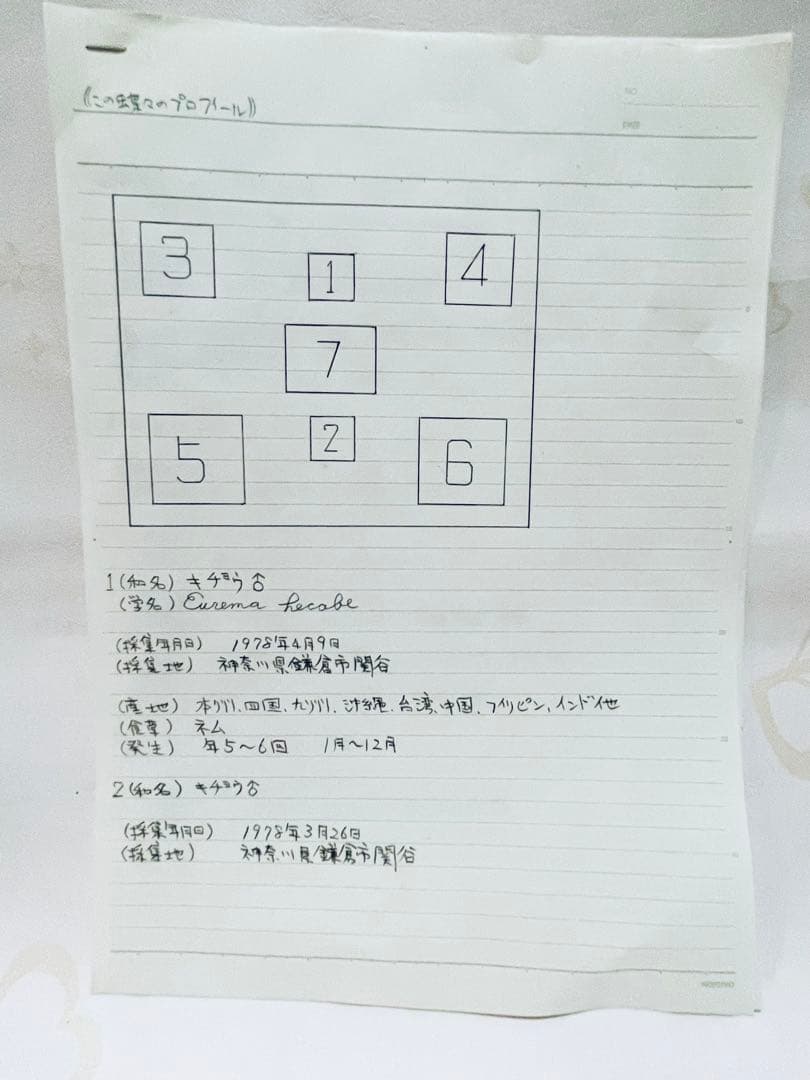 《この蝶々のプロフィール》
NO
DATE
3
1
4
7
5
2
6
1(和名) キチョウ♂
(学名) Eurema hecabe
(採集年月日) 1978年4月9日
(採集地) 神奈川県鎌倉市関谷
(産地) 本州、四国、九州、沖縄、台湾、中国、フイリピン、インド他
(食草) ネム
(発生) 年5〜6回 1月〜12月
2(和名) キチョウ♂
(採集年月日) 1978年3月26日
(採集地) 神奈川県鎌倉市関谷